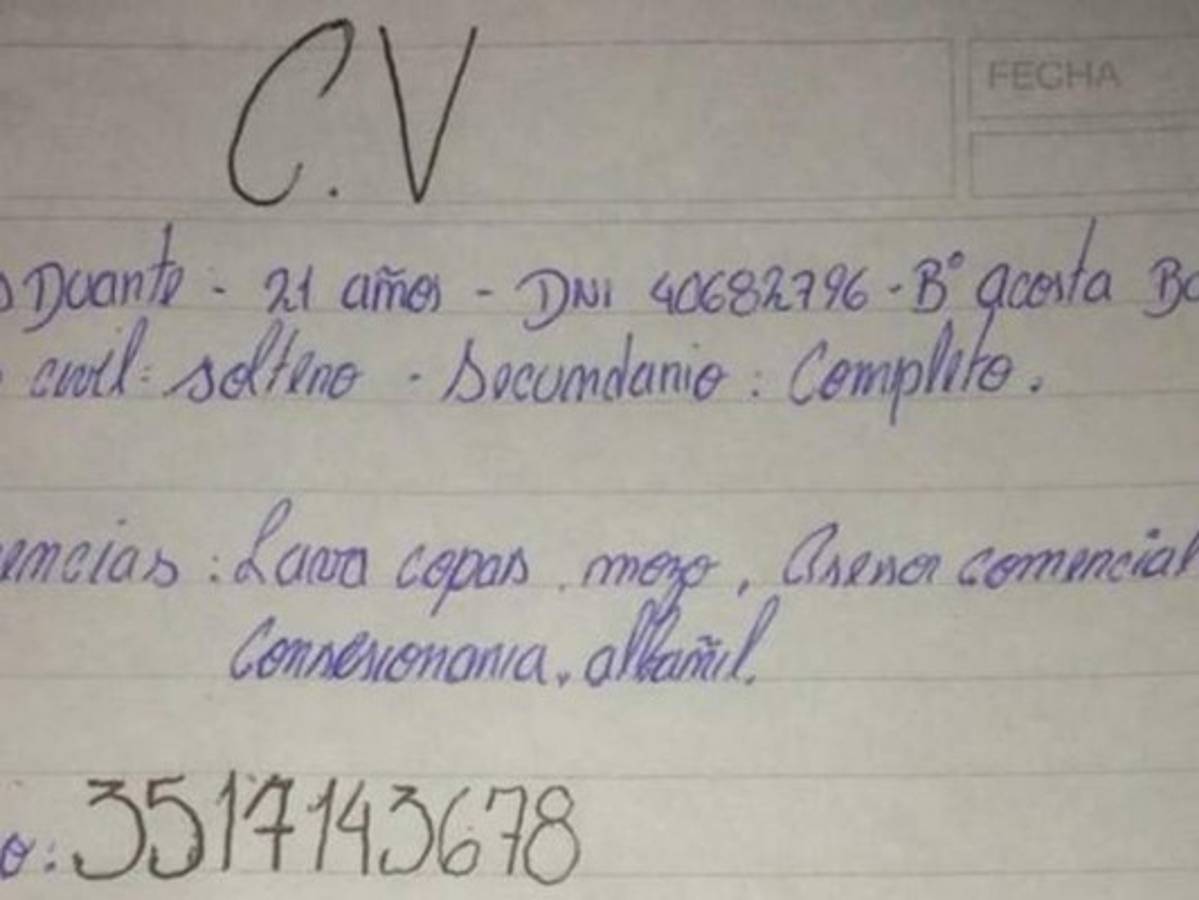 C.V
FECHA
Duarte - 21 años - DNI 40682796 - B° acosta
civil: soltero - Secundario: Completo.
encias: Lava copas, mozo, Asesor comercial
Consesionaria, albañil.
o: 3517143678